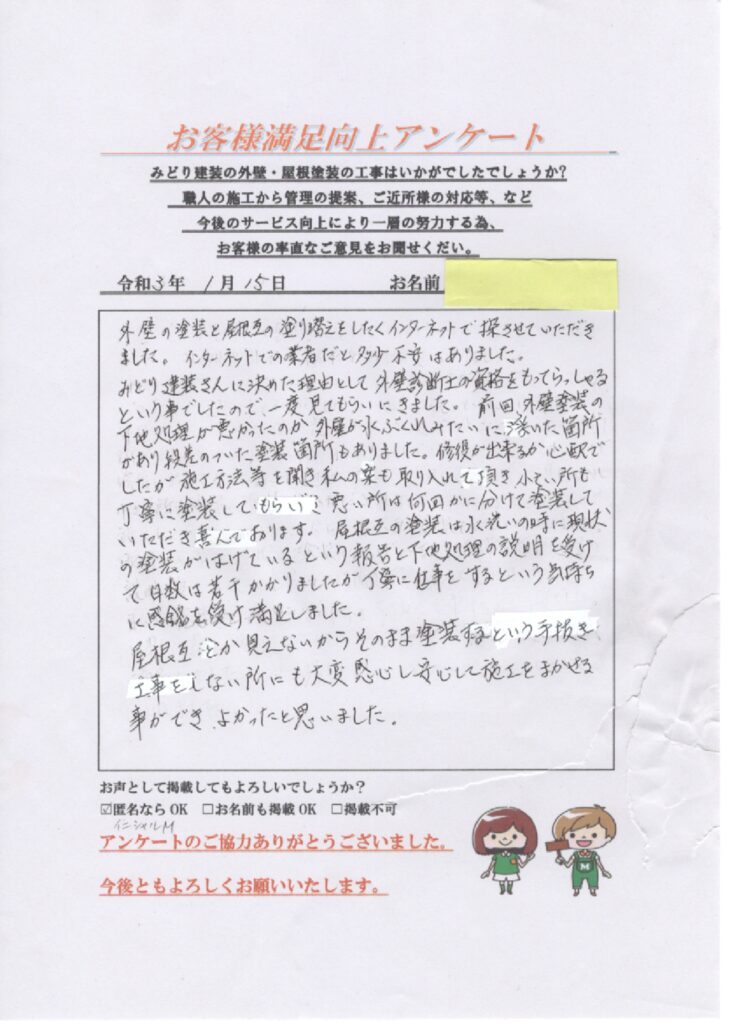 お客様満足向上アンケート
みどり建装の外壁・屋根塗装の工事はいかがでしたでしょうか?
職人の施工から管理の提案、ご近所様の対応等、など
今後のサービス向上により一層の努力する為、
お客様の率直なご意見をお聞せくだい。
令和3年 1月15日 お名前
外壁の塗装と屋根瓦の塗り替えをしたくインターネットで探させていただき
ました。インターネットでの業者だと多少不安はありました。
みどり建装さんに決めた理由として外壁診断士の資格をもってらっしゃる
という事でしたので、一度見てもらいにきました。前回、外壁塗装の
下地処理が悪かったのか外壁が水ぶくれみたいに浮いた箇所
があり段差のついた塗装箇所もありました。修復が出来るか心配で
したが施工方法等を聞き私の案も取り入れて頂き小さい所も
丁寧に塗装してもらい 悪い所は何回かに分けて塗装して
いただき喜んであります。屋根瓦の塗装は水洗いの時に現状
の塗装がはげているという報告と下地処理の説明を受け
て日数は若干かかりましたが丁寧に仕事をするという気持ち
に感銘を受け満足しました。
屋根瓦 見えないからそのまま塗装するという手抜き
工事をしない所にも大変感心し安心して施工をまかせる
事ができ、よかったと思いました。
お声として掲載してもよろしいでしょうか?
☑匿名なら OK □お名前も掲載 OK □掲載不可
イニシャルM
アンケートのご協力ありがとうございました。
今後ともよろしくお願いいたします。
M